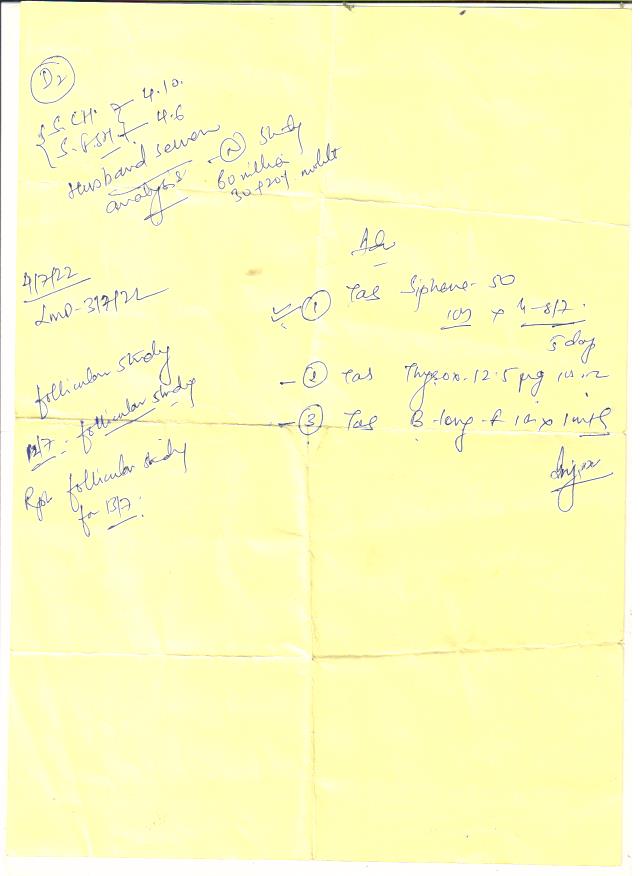 D2
S. LH. 4.10.
S. FSH 4.6
Husband semen
analysis
(N) study
60 million
30+20% motility
4/7/22
LMP-3/7/22
follicular study
12/7:- follicular study
Rpt follicular study
for 13/7:
Adv
① Tab Siphene-50
1OD x 4-8/7.
5 day
- ② Tab Thyrox.12.5 µg
- ③ Tab B-long-F 1OD x 1mth